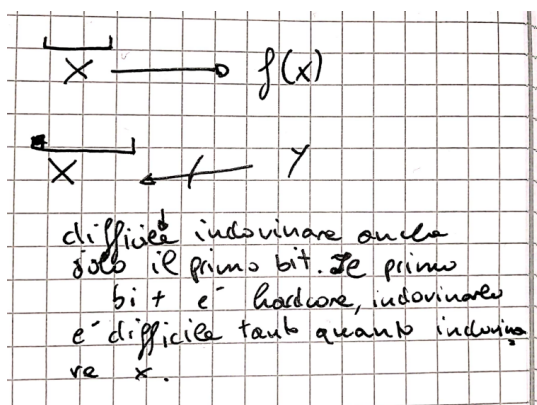 x → f(x)
x ↚ y
difficile indovinare anche
solo il primo bit. Se primo
bit é hardcore, indovinarlo
é difficile tanto quanto indovina
re x.